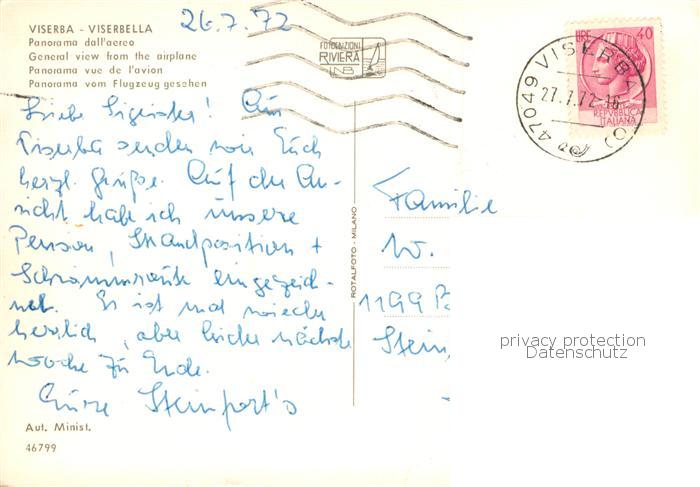 VISERBA - VISERBELLA
Panorama dall'aereo
General view from the airplane
Panorama vue de l'avion
Panorama vom Flugzeug gesehen
26.7.72
FOTOEDIZIONI
RIVIERA
LIRE 40
REPVBBLICA
ITALIANA
47049 VISERBA (FO)
27.7.72-16
Liebe! Aus
Viserba senden wir Euch
herzl. Grüße. Auf der An-
sicht habe ich unsere
Pension, Standposition +
eingezeich-
net. Es ist mal wieder
herrlich, aber leider nächste
Woche zu Ende.
Eure Steinfort's
ROTALFOTO - MILANO
Familie
W.
1199
Stein
privacy protection
Datenschutz
Aut. Minist.
46799